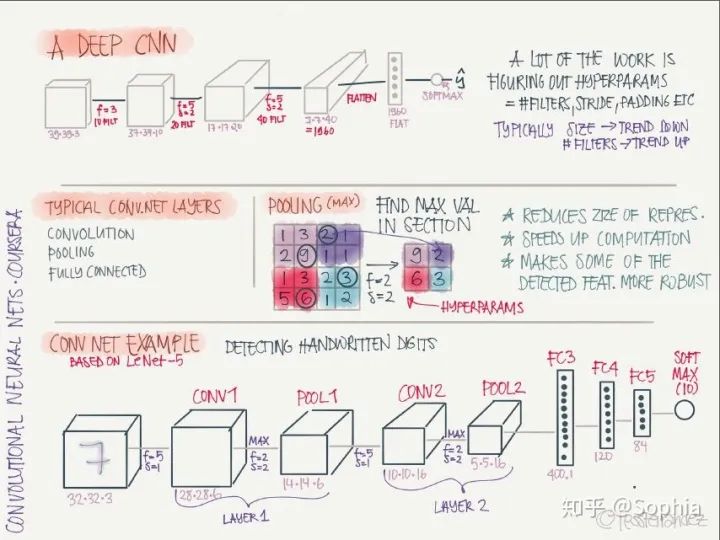 A DEEP CNN
39·39·3
f=3
10 FILT
37·37·10
f=5
s=2
20 FILT
17·17·20
f=5
s=2
40 FILT
7·7·40
=1960
FLATTEN
1960
FLAT
ŷ
SOFTMAX
A LOT OF THE WORK IS
FIGURING OUT HYPERPARAMS
= #FILTERS, STRIDE, PADDING ETC
TYPICALLY SIZE → TREND DOWN
# FILTERS → TREND UP
TYPICAL CONV.NET LAYERS
CONVOLUTION
POOLING
FULLY CONNECTED
POOLING (MAX)
FIND MAX VAL
IN SECTION
1 3 2 1
2 9 1 1
1 3 2 3
5 6 1 2
f=2
s=2
9 2
6 3
HYPERPARAMS
★ REDUCES SIZE OF REPRES.
★ SPEEDS UP COMPUTATION
★ MAKES SOME OF THE
DETECTED FEAT. MORE ROBUST
CONVOLUTIONAL NEURAL NETS · COURSERA
CONV NET EXAMPLE
BASED ON LeNet-5
DETECTING HANDWRITTEN DIGITS
7
32·32·3
f=5
s=1
CONV1
28·28·6
MAX
f=2
s=2
POOL1
14·14·6
LAYER 1
f=5
s=1
CONV2
10·10·16
MAX
f=2
s=2
POOL2
5·5·16
LAYER 2
FC3
400·1
FC4
120
FC5
84
SOFT
MAX
(10)
知乎 @Sophia